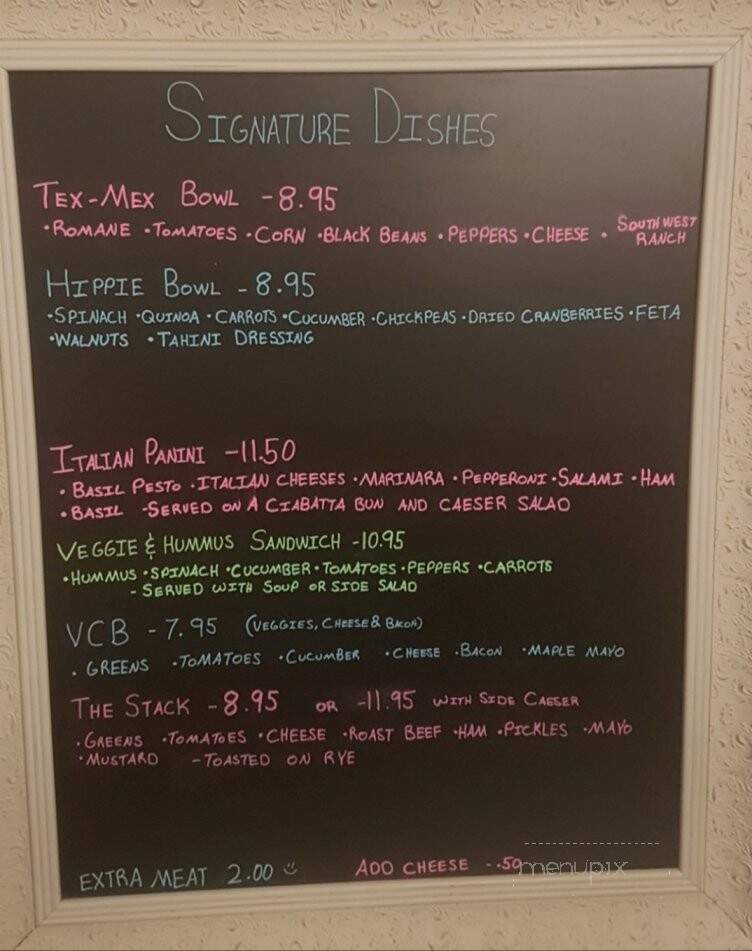 SIGNATURE DISHES
TEX-MEX BOWL -8.95
•ROMANE •TOMATOES •CORN •BLACK BEANS •PEPPERS •CHEESE • SOUTHWEST RANCH
HIPPIE BOWL -8.95
•SPINACH •QUINOA •CARROTS •CUCUMBER •CHICKPEAS •DRIED CRANBERRIES •FETA
•WALNUTS •TAHINI DRESSING
ITALIAN PANINI -11.50
•BASIL PESTO •ITALIAN CHEESES •MARINARA •PEPPERONI •SALAMI •HAM
•BASIL -SERVED ON A CIABATTA BUN AND CAESER SALAD
VEGGIE & HUMMUS SANDWICH -10.95
•HUMMUS •SPINACH •CUCUMBER •TOMATOES •PEPPERS •CARROTS
-SERVED WITH SOUP OR SIDE SALAD
VCB -7.95 (VEGGIES, CHEESE & BACON)
•GREENS •TOMATOES •CUCUMBER •CHEESE •BACON •MAPLE MAYO
THE STACK -8.95 OR -11.95 WITH SIDE CAESER
•GREENS •TOMATOES •CHEESE •ROAST BEEF •HAM •PICKLES •MAYO
•MUSTARD -TOASTED ON RYE
EXTRA MEAT 2.00 ADD CHEESE -.50
menupix